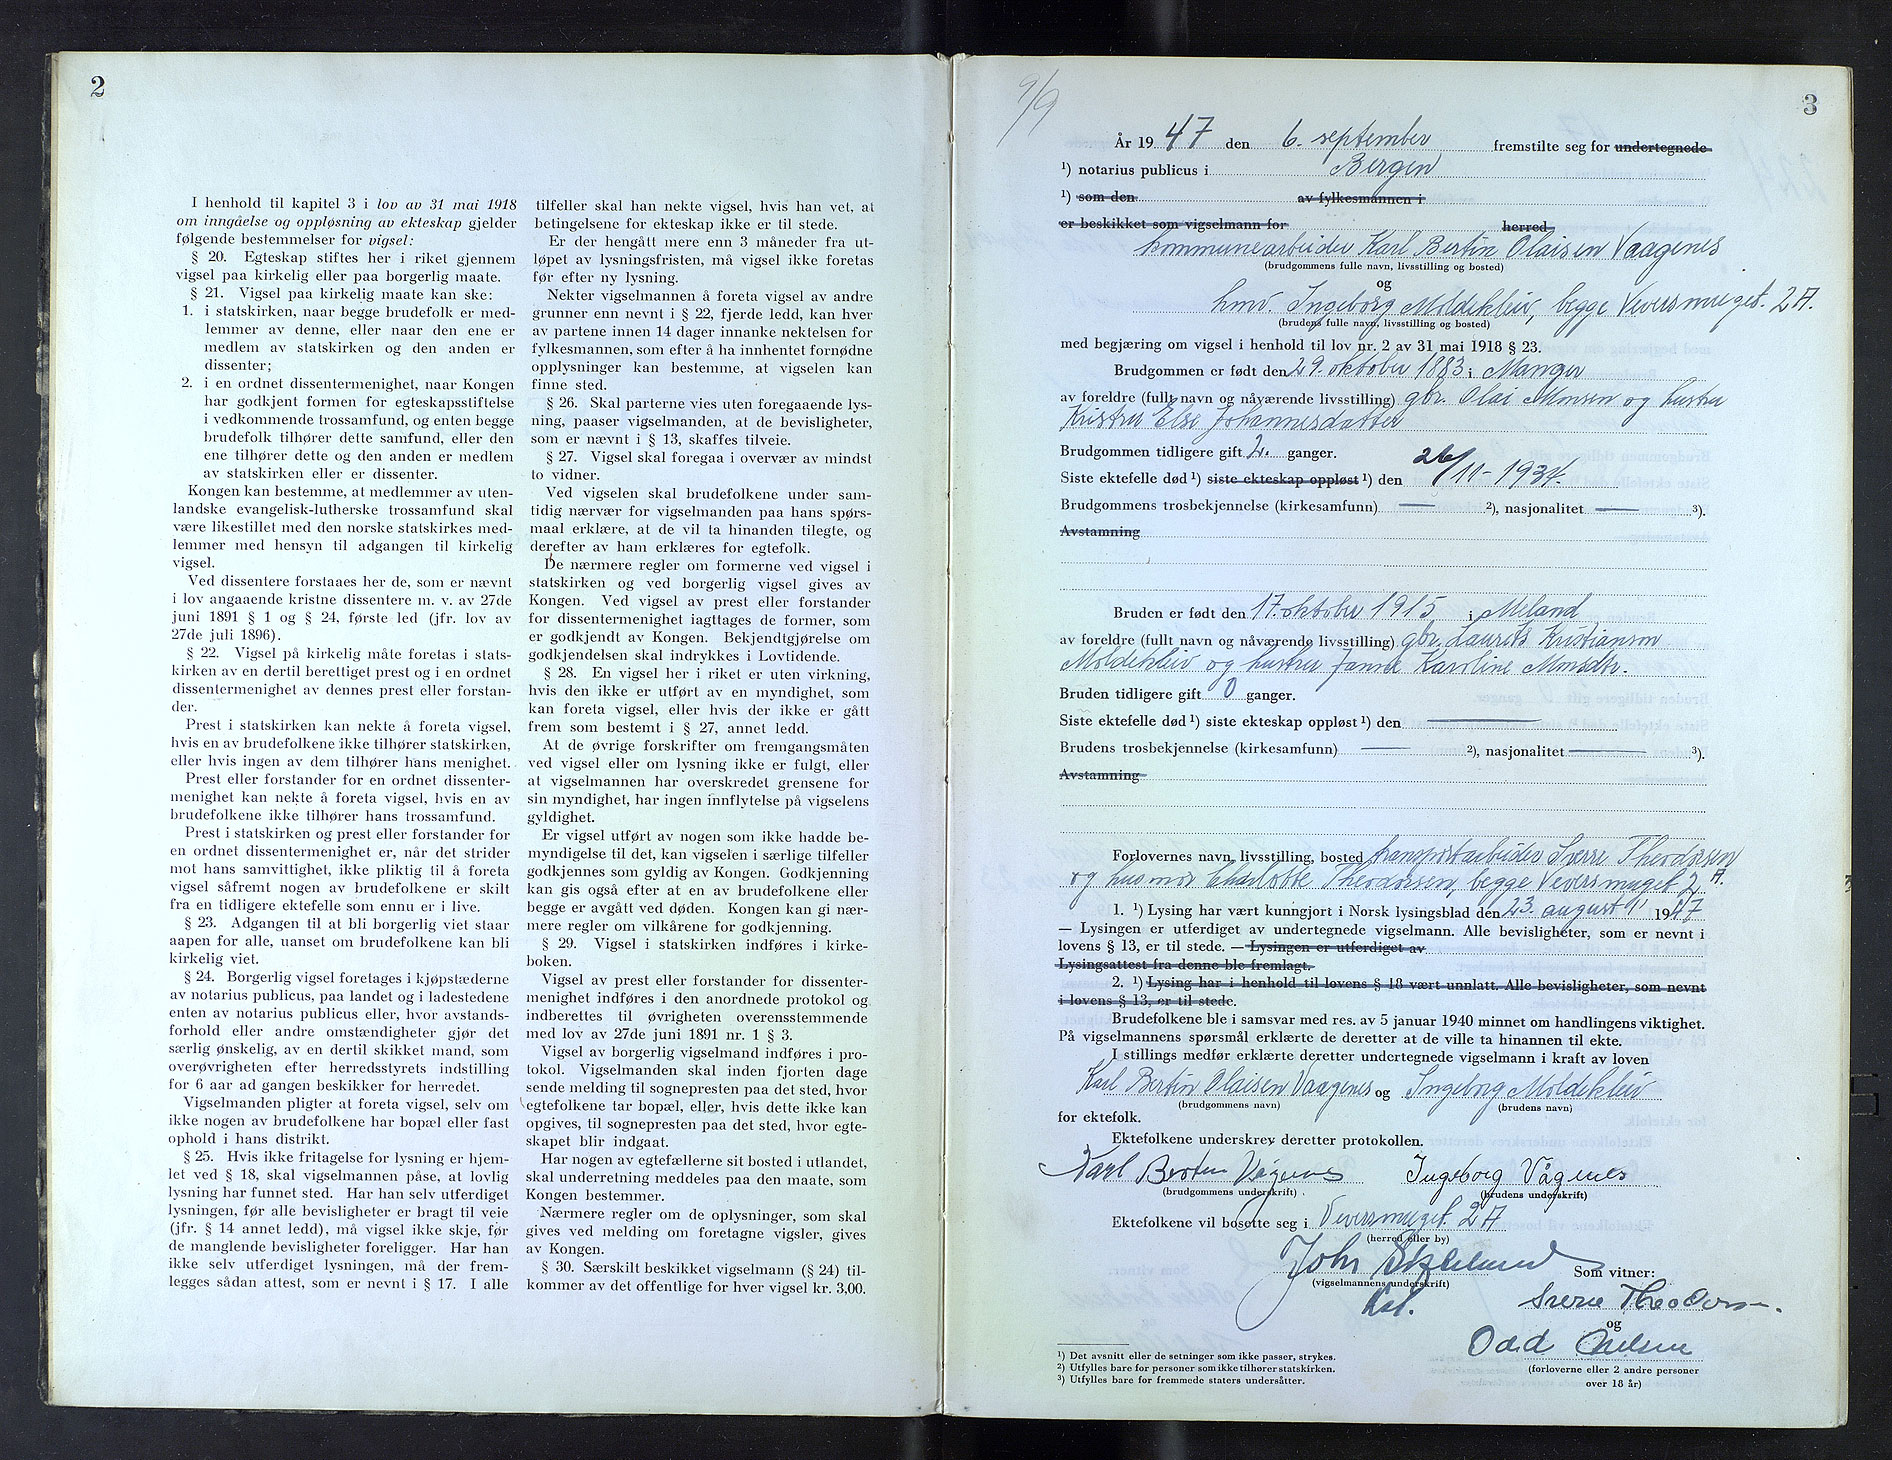 2
I henhold til kapitel 3 i lov av 31 mai 1918
om inngåelse og oppløsning av ekteskap gjelder
følgende bestemmelser for vigsel:
§ 20. Egteskap stiftes her i riket gjennem
vigsel paa kirkelig eller paa borgerlig maate.
§ 21. Vigsel paa kirkelig maate kan ske:
1. i statskirken, naar begge brudefolk er med-
lemmer av denne, eller naar den ene er
medlem av statskirken og den anden er
dissenter;
2. i en ordnet dissentermenighet, naar Kongen
har godkjent formen for egteskapsstiftelse
i vedkommende trossamfund, og enten begge
brudefolk tilhører dette samfund, eller den
ene tilhører dette og den anden er medlem
av statskirken eller er dissenter.
Kongen kan bestemme, at medlemmer av uten-
landske evangelisk-lutherske trossamfund skal
være likestillet med den norske statskirkes med-
lemmer med hensyn til adgangen til kirkelig
vigsel.
Ved dissentere forstaaes her de, som er nævnt
i lov angaaende kristne dissentere m. v. av 27de
juni 1891 § 1 og § 24, første led (jfr. lov av
27de juli 1896).
§ 22. Vigsel på kirkelig måte foretas i stats-
kirken av en dertil berettiget prest og i en ordnet
dissentermenighet av dennes prest eller forstan-
der.
Prest i statskirken kan nekte å foreta vigsel,
hvis en av brudefolkene ikke tilhører statskirken,
eller hvis ingen av dem tilhører hans menighet.
Prest eller forstander for en ordnet dissenter-
menighet kan nekte å foreta vigsel, hvis en av
brudefolkene ikke tilhører hans trossamfund.
Prest i statskirken og prest eller forstander for
en ordnet dissentermenighet er, når det strider
mot hans samvittighet, ikke pliktig til å foreta
vigsel såfremt nogen av brudefolkene er skilt
fra en tidligere ektefelle som ennu er i live.
§ 23. Adgangen til at bli borgerlig viet staar
aapen for alle, uanset om brudefolkene kan bli
kirkelig viet.
§ 24. Borgerlig vigsel foretages i kjøpstæderne
av notarius publicus, paa landet og i ladestedene
enten av notarius publicus eller, hvor avstands-
forhold eller andre omstændigheter gjør det
særlig ønskelig, av en dertil skikket mand, som
overøvrigheten efter herredsstyrets indstilling
for 6 aar ad gangen beskikker for herredet.
Vigselmanden pligter at foreta vigsel, selv om
ikke nogen av brudefolkene har bopæl eller fast
ophold i hans distrikt.
§ 25. Hvis ikke fritagelse for lysning er hjem-
let ved § 18, skal vigselmannen påse, at lovlig
lysning har funnet sted. Har han selv utferdiget
lysningen, før alle bevisligheter er bragt til veie
(jfr. § 14 annet ledd), må vigsel ikke skje, før
de manglende bevisligheter foreligger. Har han
ikke selv utferdiget lysningen, må der frem-
legges sådan attest, som er nevnt i § 17. I alle
tilfeller skal han nekte vigsel, hvis han vet, at
betingelsene for ekteskap ikke er til stede.
Er der hengått mere enn 3 måneder fra ut-
løpet av lysningsfristen, må vigsel ikke foretas
før efter ny lysning.
Nekter vigselmannen å foreta vigsel av andre
grunner enn nevnt i § 22, fjerde ledd, kan hver
av partene innen 14 dager innanke nektelsen for
fylkesmannen, som efter å ha innhentet fornødne
opplysninger kan bestemme, at vigselen kan
finne sted.
§ 26. Skal parterne vies uten foregaaende lys-
ning, paaser vigselmanden, at de bevisligheter,
som er nævnt i § 13, skaffes tilveie.
§ 27. Vigsel skal foregaa i overvær av mindst
to vidner.
Ved vigselen skal brudefolkene under sam-
tidig nærvær for vigselmanden paa hans spørs-
maal erklære, at de vil ta hinanden tilegte, og
derefter av ham erklæres for egtefolk.
De nærmere regler om formerne ved vigsel i
statskirken og ved borgerlig vigsel gives av
Kongen. Ved vigsel av prest eller forstander
for dissentermenighet iagttages de former, som
er godkjendt av Kongen. Bekjendtgjørelse om
godkjendelsen skal indrykkes i Lovtidende.
§ 28. En vigsel her i riket er uten virkning,
hvis den ikke er utført av en myndighet, som
kan foreta vigsel, eller hvis der ikke er gått
frem som bestemt i § 27, annet ledd.
At de øvrige forskrifter om fremgangsmåten
ved vigsel eller om lysning ikke er fulgt, eller
at vigselmannen har overskredet grensene for
sin myndighet, har ingen innflytelse på vigselens
gyldighet.
Er vigsel utført av nogen som ikke hadde be-
myndigelse til det, kan vigselen i særlige tilfeller
godkjennes som gyldig av Kongen. Godkjenning
kan gis også efter at en av brudefolkene eller
begge er avgått ved døden. Kongen kan gi nær-
mere regler om vilkårene for godkjenning.
§ 29. Vigsel i statskirken indføres i kirke-
boken.
Vigsel av prest eller forstander for dissenter-
menighet indføres i den anordnede protokol og
indberettes til øvrigheten overensstemmende
med lov av 27de juni 1891 nr. 1 § 3.
Vigsel av borgerlig vigselmand indføres i pro-
tokol. Vigselmanden skal inden fjorten dage
sende melding til sognepresten paa det sted, hvor
egtefolkene tar bopæl, eller, hvis dette ikke kan
opgives, til sognepresten paa det sted, hvor egte-
skapet blir indgaat.
Har nogen av egtefællerne sit bosted i utlandet,
skal underretning meddeles paa den maate, som
Kongen bestemmer.
Nærmere regler om de oplysninger, som skal
gives ved melding om foretagne vigsler, gives
av Kongen.
§ 30. Særskilt beskikket vigselmann (§ 24) til-
kommer av det offentlige for hver vigsel kr. 3,00.
9/9
3
År 1947 den 6. september fremstilte seg for undertegnede
1) notarius publicus i Bergen
1) som den av fylkesmannen i
er beskikket som vigselmann for herred,
kommunearbeider Karl Bertin Olaisen Vaagenes
(brudgommens fulle navn, livsstilling og bosted)
og
hmv. Ingeborg Moldekleiv, begge Veversmuget 2 A.
(brudens fulle navn, livsstilling og bosted)
med begjæring om vigsel i henhold til lov nr. 2 av 31 mai 1918 § 23.
Brudgommen er født den 29. oktober 1883 i Manger
av foreldre (fullt navn og nåværende livsstilling) gbr. Olai Monsen og hustru
Kristru Else Johannesdatter
Brudgommen tidligere gift 2. ganger.
Siste ektefelle død 1) siste ekteskap oppløst 1) den 26/11-1934.
Brudgommens trosbekjennelse (kirkesamfunn) — 2), nasjonalitet — 3).
Avstamning
Bruden er født den 17. oktober 1915 i Meland
av foreldre (fullt navn og nåværende livsstilling) gbr. Laurits Kristiansen
Moldekleiv og hustru Janna Karoline Monsdtr.
Bruden tidligere gift 0 ganger.
Siste ektefelle død 1) siste ekteskap oppløst 1) den —
Brudens trosbekjennelse (kirkesamfunn) — 2), nasjonalitet — 3).
Avstamning
Forlovernes navn, livsstilling, bosted transportarbeider Sverre Theodorsen
og husmor Charlotte Theodorsen, begge Veversmuget 2 A.
1. 1) Lysing har vært kunngjort i Norsk lysingsblad den 23. august 1947
— Lysingen er utferdiget av undertegnede vigselmann. Alle bevisligheter, som er nevnt i
lovens § 13, er til stede. — Lysingen er utferdiget av
Lysingsattest fra denne ble fremlagt.
2. 1) Lysing har i henhold til lovens § 18 vært unnlatt. Alle bevisligheter, som nevnt
i lovens § 13, er til stede.
Brudefolkene ble i samsvar med res. av 5 januar 1940 minnet om handlingens viktighet.
På vigselmannens spørsmål erklærte de deretter at de ville ta hinannen til ekte.
I stillings medfør erklærte deretter undertegnede vigselmann i kraft av loven
Karl Bertin Olaisen Vaagenes og Ingeborg Moldekleiv
(brudgommens navn) (brudens navn)
for ektefolk.
Ektefolkene underskrev deretter protokollen.
Karl Bertin Vågenes Ingeborg Vågenes
(brudgommens underskrift) (brudens underskrift)
Ektefolkene vil bosette seg i Veversmuget 2 A
(herred eller by)
John
(vigselmannens underskrift)
Som vitner:
Sverre Theodorsen.
og
Odd
(forloverne eller 2 andre personer
over 18 år)
1) Det avsnitt eller de setninger som ikke passer, strykes.
2) Utfylles bare for personer som ikke tilhører statskirken.
3) Utfylles bare for fremmede staters undersåtter.